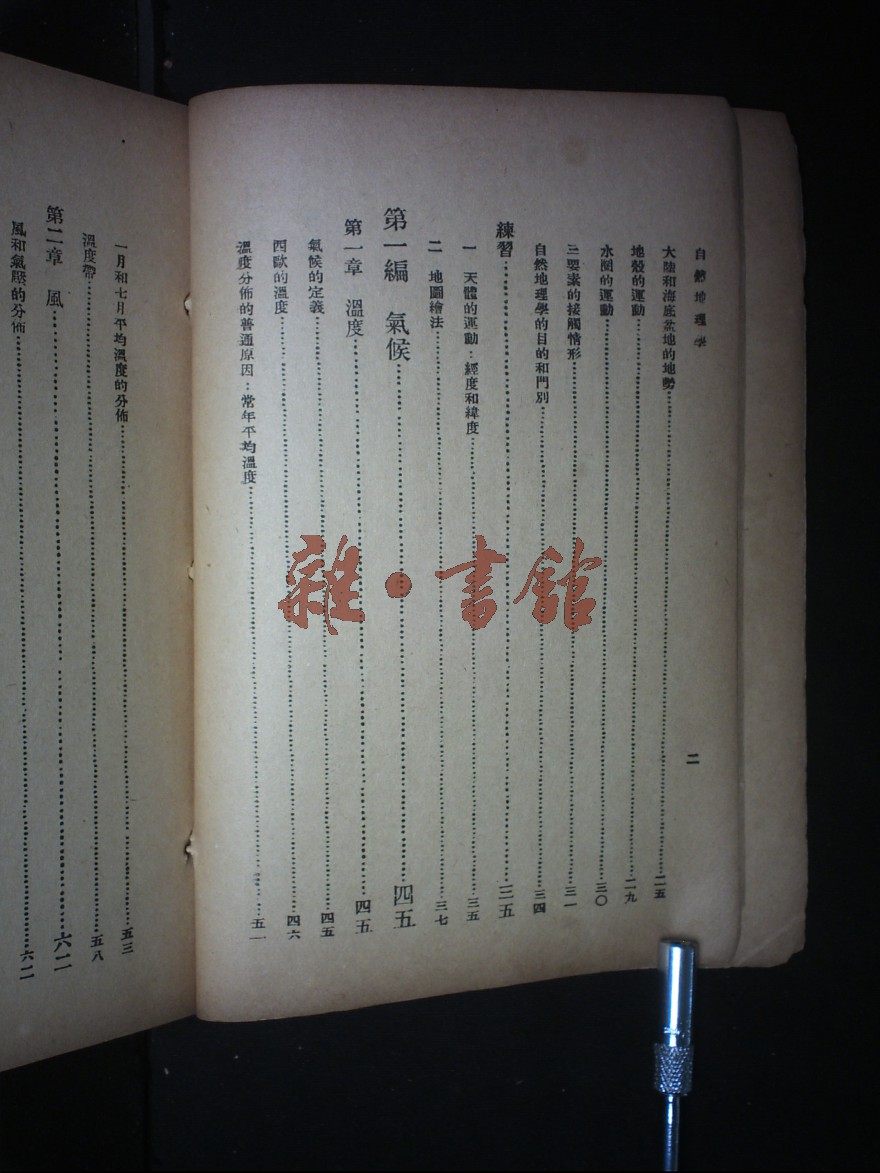 自然地理學
二
大陸和海底盆地的地勢……二五
地殼的運動……二九
水圈的運動……三〇
三要素的接觸情形……三一
自然地理學的目的和門別……三四
練習……三五
一 天體的運動：經度和緯度……三五
二 地圖繪法……三七
第一編 氣候……四五
第一章 溫度……四五
氣候的定義……四五
西歐的溫度……四六
溫度分佈的普通原因：常年平均溫度……五一
一月和七月平均溫度的分佈……五三
溫度帶……五八
第二章 風……六二
風和氣壓的分佈……六二
雜·書館